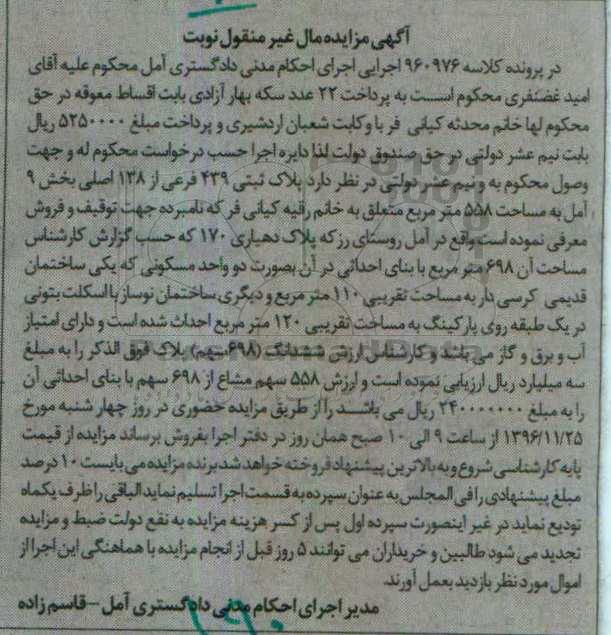 آگهی مزایده مال غیر منقول نوبت
در پرونده کلاسه ۹۶۰۹۷۶ اجرایی اجرای احکام مدنی دادگستری آمل محکوم علیه آقای
امید غضنفری محکوم است به پرداخت ۲۲ عدد سکه بهار آزادی بابت اقساط معوقه در حق
محکوم لها خانم محدثه کیانی فر با وکابت شعبان اردشیری و پرداخت مبلغ ۵۲۵۰۰۰۰ ریال
بابت نیم عشر دولتی در حق صندوق دولت لذا دایره اجرا حسب درخواست محکوم له و جهت
وصول محکوم به و نیم عشر دولتی در نظر دارد پلاک ثبتی ۴۳۹ فرعی از ۱۳۸ اصلی بخش ۹
آمل به مساحت ۵۵۸ متر مربع متعلق به خانم راقیه کیانی فر که نامبرده جهت توقیف و فروش
معرفی نموده است واقع در آمل روستای رزکه پلاک دهیاری ۱۷۰ که حسب گزارش کارشناس
مساحت آن ۶۹۸ متر مربع با بنای احداثی در آن بصورت دو واحد مسکونی که یکی ساختمان
قدیمی کرسی دار به مساحت تقریبی ۱۱۰ متر مربع و دیگری ساختمان نوساز با اسکلت بتونی
در یک طبقه روی پارکینگ به مساحت تقریبی ۱۲۰ متر مربع احداث شده است و دارای امتیاز
آب و برق و گاز می باشد و کارشناس ارزش ششدانگ (۶۹۸سهم) پلاک فوق الذکر را به مبلغ
سه میلیارد ریال ارزیابی نموده است و ارزش ۵۵۸ سهم مشاع از ۶۹۸ سهم با بنای احداثی آن
را به مبلغ ۲۴۰۰۰۰۰۰۰۰ ریال می باشد را از طریق مزایده حضوری در روز چهار شنبه مورخ
۱۳۹۶/۱۱/۲۵ از ساعت ۹ الی ۱۰ صبح همان روز در دفتر اجرا بفروش برساند مزایده از قیمت
پایه کارشناسی شروع و به بالاترین پیشنهاد فروخته خواهد شد برنده مزایده می بایست ۱۰ درصد
مبلغ پیشنهادی را فی المجلس به عنوان سپرده به قسمت اجرا تسلیم نماید الباقی را ظرف یکماه
تودیع نماید در غیر اینصورت سپرده اول پس از کسر هزینه مزایده به نفع دولت ضبط و مزایده
تجدید می شود طالبین و خریداران می توانند ۵ روز قبل از انجام مزایده با هماهنگی این اجرا از
اموال مورد نظر بازدید بعمل آورند.
مدیر اجرای احکام مدنی دادگستری آمل – قاسم زاده